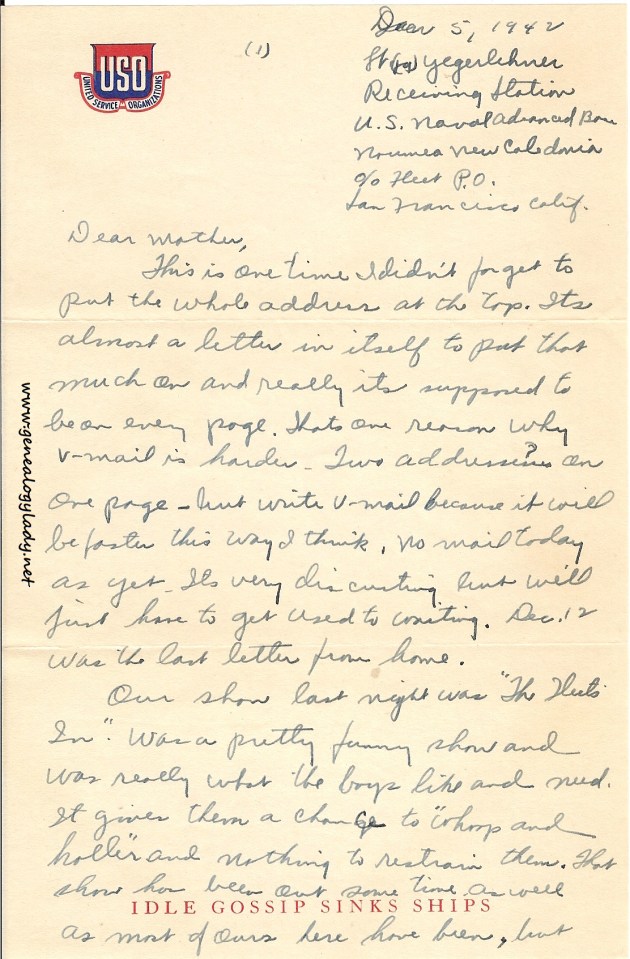 USO
UNITED SERVICE ORGANIZATIONS
(1)
5, 1942
Lt (jg) Yegerlehner
Receiving Station
U.S. Naval Advanced Base
Noumea New Caledonia
c/o Fleet P.O.
San Francisco Calif.
Dear Mother,
This is one time I didn't forget to
put the whole address at the top. Its
almost a letter in itself to put that
much on and really its supposed to
be on every page. Thats one reason why
V-mail is harder - Two addresses on
one page - but write V-mail because it will
be faster this way I think. No mail today
as yet - Its very discusting but we'll
just have to get used to waiting. Dec. 12
was the last letter from home.
Our show last night was "The Fleets
In". Was a pretty funny show and
was really what the boys like and need.
It gives them a change to "whoop and
holler" and nothing to restrain them. That
show has been out some time as well
IDLE GOSSIP SINKS SHIPS
as most of ours here have been, but
www.genealogylady.net